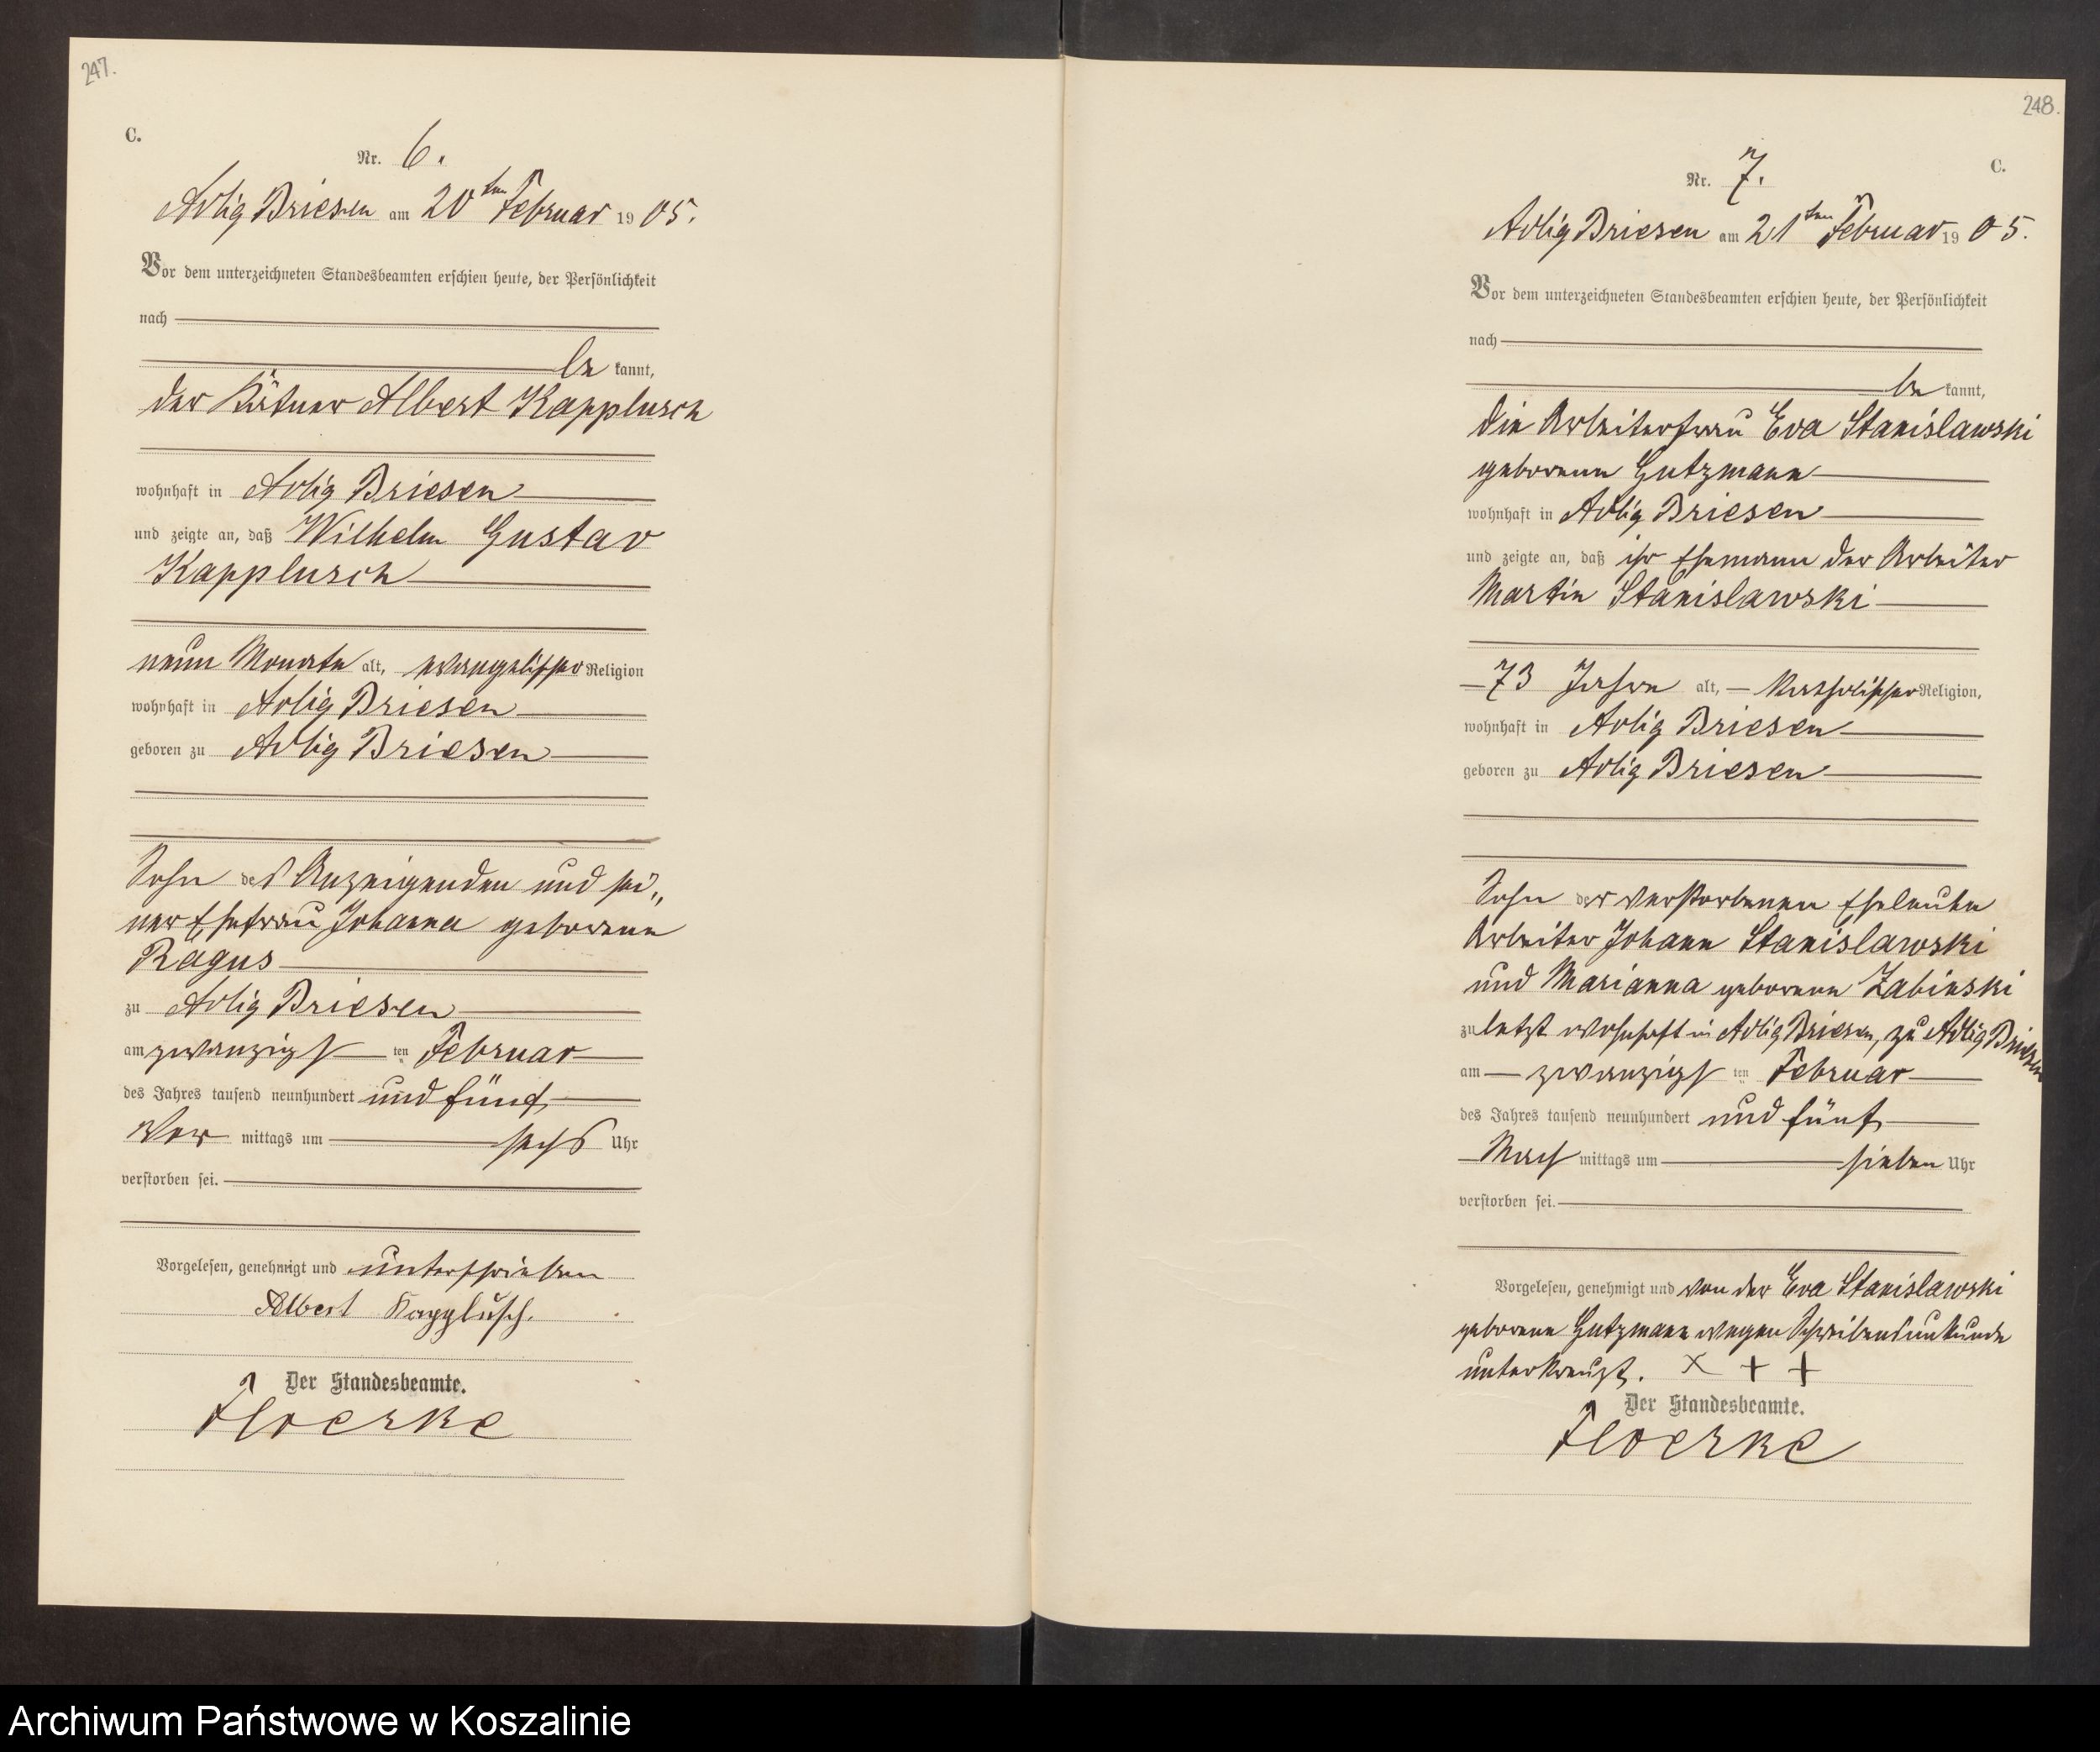 247.
C.
Nr. 6.
Adlig Briesen am 20ten Februar 1905.
Vor dem unterzeichneten Standesbeamten erschien heute, der Persönlichkeit
nach
be kannt,
der Kätner Albert Kapplusch
wohnhaft in Adlig Briesen
und zeigte an, daß Wilhelm Gustav
Kapplusch
neun Monate alt, evangelischer Religion
wohnhaft in Adlig Briesen
geboren zu Adlig Briesen
Sohn des Anzeigenden und sei„
ner Ehefrau Johanna geborenen
Ragus
zu Adlig Briesen
am zwanzigsten Februar
des Jahres tausend neunhundert und fünf
Vor mittags um sechs Uhr
verstorben sei.
Vorgelesen, genehmigt und unterschrieben
Albert Kapplusch.
Der Standesbeamte.
Floerke
248.
C.
Nr. 7.
Adlig Briesen am 21ten Februar 1905.
Vor dem unterzeichneten Standesbeamten erschien heute, der Persönlichkeit
nach
be kannt,
die Arbeiterfrau Eva Stanislawski
geborenen Gutzmann
wohnhaft in Adlig Briesen
und zeigte an, daß ihr Ehemann der Arbeiter
Martin Stanislawski
73 Jahre alt, katholischer Religion,
wohnhaft in Adlig Briesen
geboren zu Adlig Briesen
Sohn der verstorbenen Eheleute
Arbeiter Johann Stanislawski
und Marianna geborenen Zabinski
zuletzt wohnhaft in Adlig Briesen, zu Adlig Briesen
am zwanzigsten Februar
des Jahres tausend neunhundert und fünf
Nach mittags um sieben Uhr
verstorben sei.
Vorgelesen, genehmigt und von der Eva Stanislawski
geborene Gutzmann wegen Schreibensunkunde
unterkreuzt. X + +
Der Standesbeamte.
Floerke
Archiwum Państwowe w Koszalinie